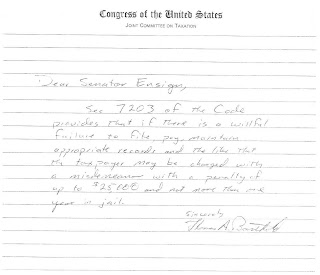 Congress of the United States
JOINT COMMITTEE ON TAXATION
Dear Senator Ensign,
Sec 7203 of the Code
provides that if there is a willful
failure to file, pay, maintain
appropriate records and the like that
the taxpayer may be charged with
a misdemeanor with a penalty of
up to $25,000 and not more than one
year in jail.
Sincerely
Thomas A. Barthold